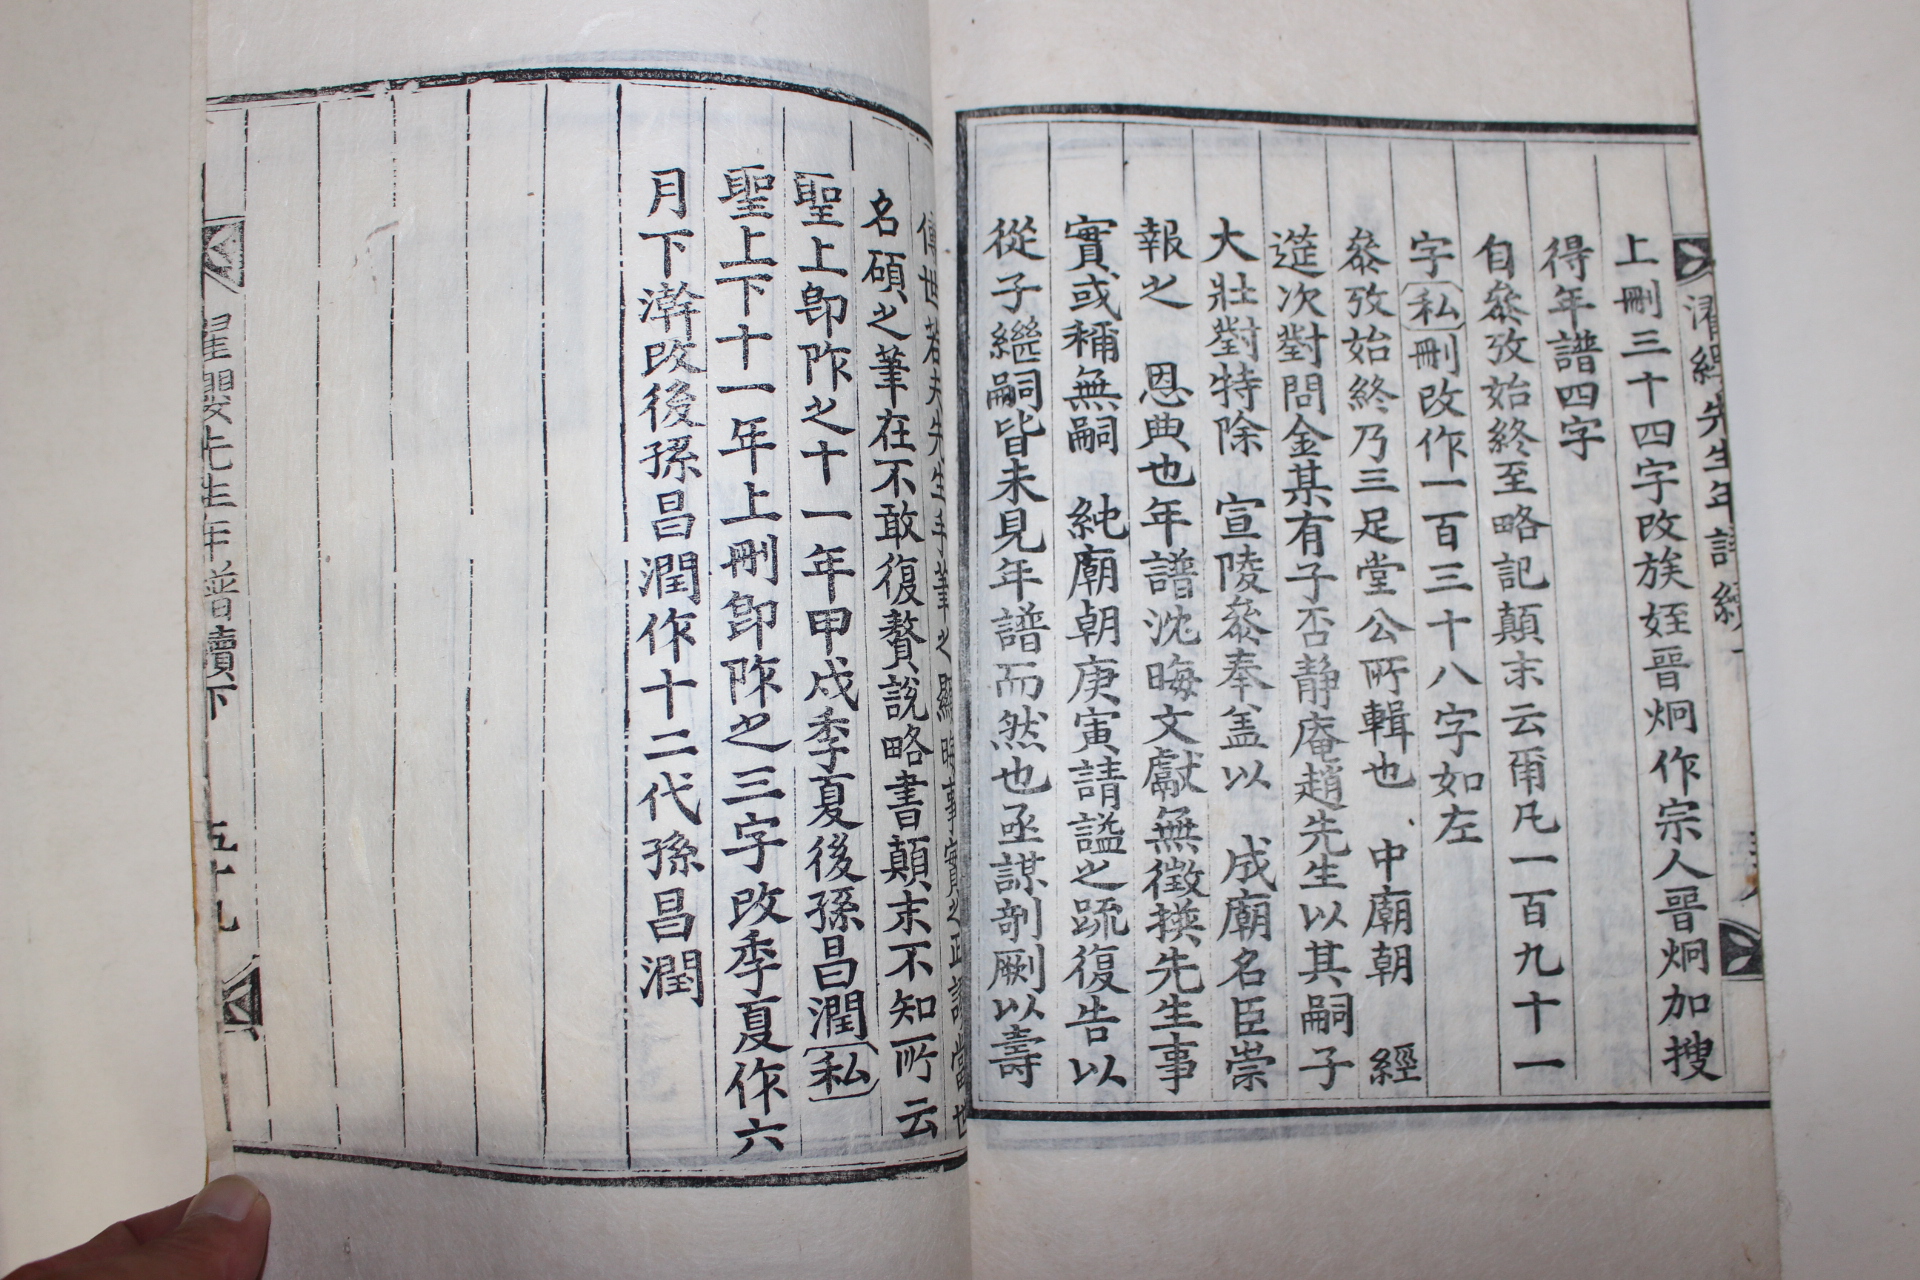 濯纓先生年譜續下
上刪三十四字改族姪晋炯作宗人晋炯加搜
得年譜四字
自叅攷始終至略記顛末云爾凡一百九十一
字私刪改作一百三十八字如左
叅攷始終乃三足堂公所輯也 中廟朝 經
筵次對問金某有子否静庵趙先生以其嗣子
大壯對特除 宣陵叅奉盖以 成廟名臣崇
報之 恩典也年譜沈晦文獻無徵撰先生事
實或稱無嗣 純廟朝庚寅請謚之疏復告以
從子繼嗣皆未見年譜而然也亟謀剞劂以壽
傳世若夫先生手筆之顯時事實之正諸當世
名碩之筆在不敢復贅説略書顛末不知所云
聖上卽阼之十一年甲戌季夏後孫昌潤私
聖上下十一年上刪卽阼之三字改季夏作六
月下澣改後孫昌潤作十二代孫昌潤
濯纓先生年譜續下
五十九